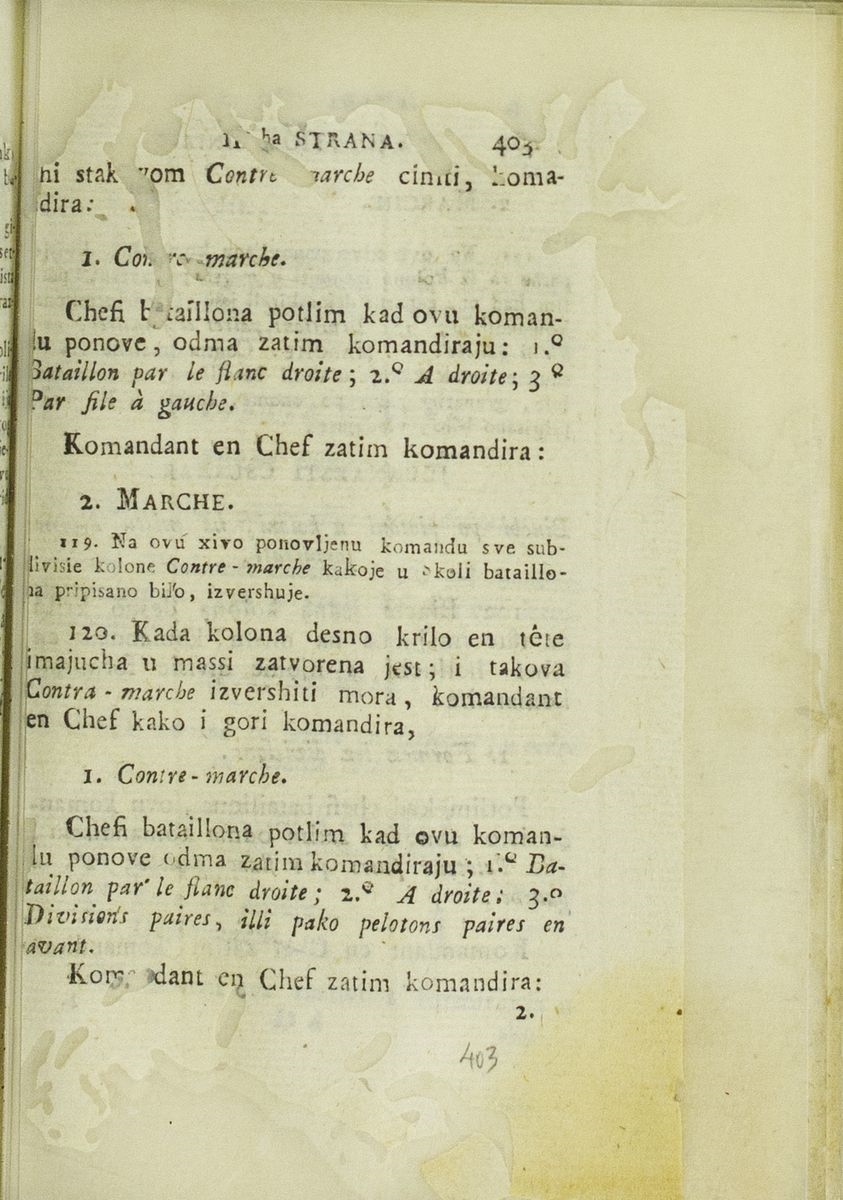 STRANA. 403
Contre marche
dira:
1. marche.
Chefi potlim kad ovu koman-
ponove, odma zatim komandiraju: 1.º
Bataillon par le flanc droite; 2.º A droite; 3º
Par file à gauche.
Komandant en Chef zatim komandira:
2. MARCHE.
119. Na ovu xivo ponovljenu komandu sve sub-
divisie kolone Contre-marche kakoje u bataillo-
na pripisano bilo, izvershuje.
120. Kada kolona desno krilo en tête
imajucha u massi zatvorena jest; i takova
Contra-marche izvershiti mora, komandant
en Chef kako i gori komandira,
1. Contre-marche.
Chefi bataillona potlim kad ovu koman-
ponove odma zatim komandiraju; 1.º Ba-
taillon par le flanc droite; 2.º A droite: 3.º
Divisions paires, illi pako pelotons paires en
avant.
Komandant en Chef zatim komandira:
2.
403